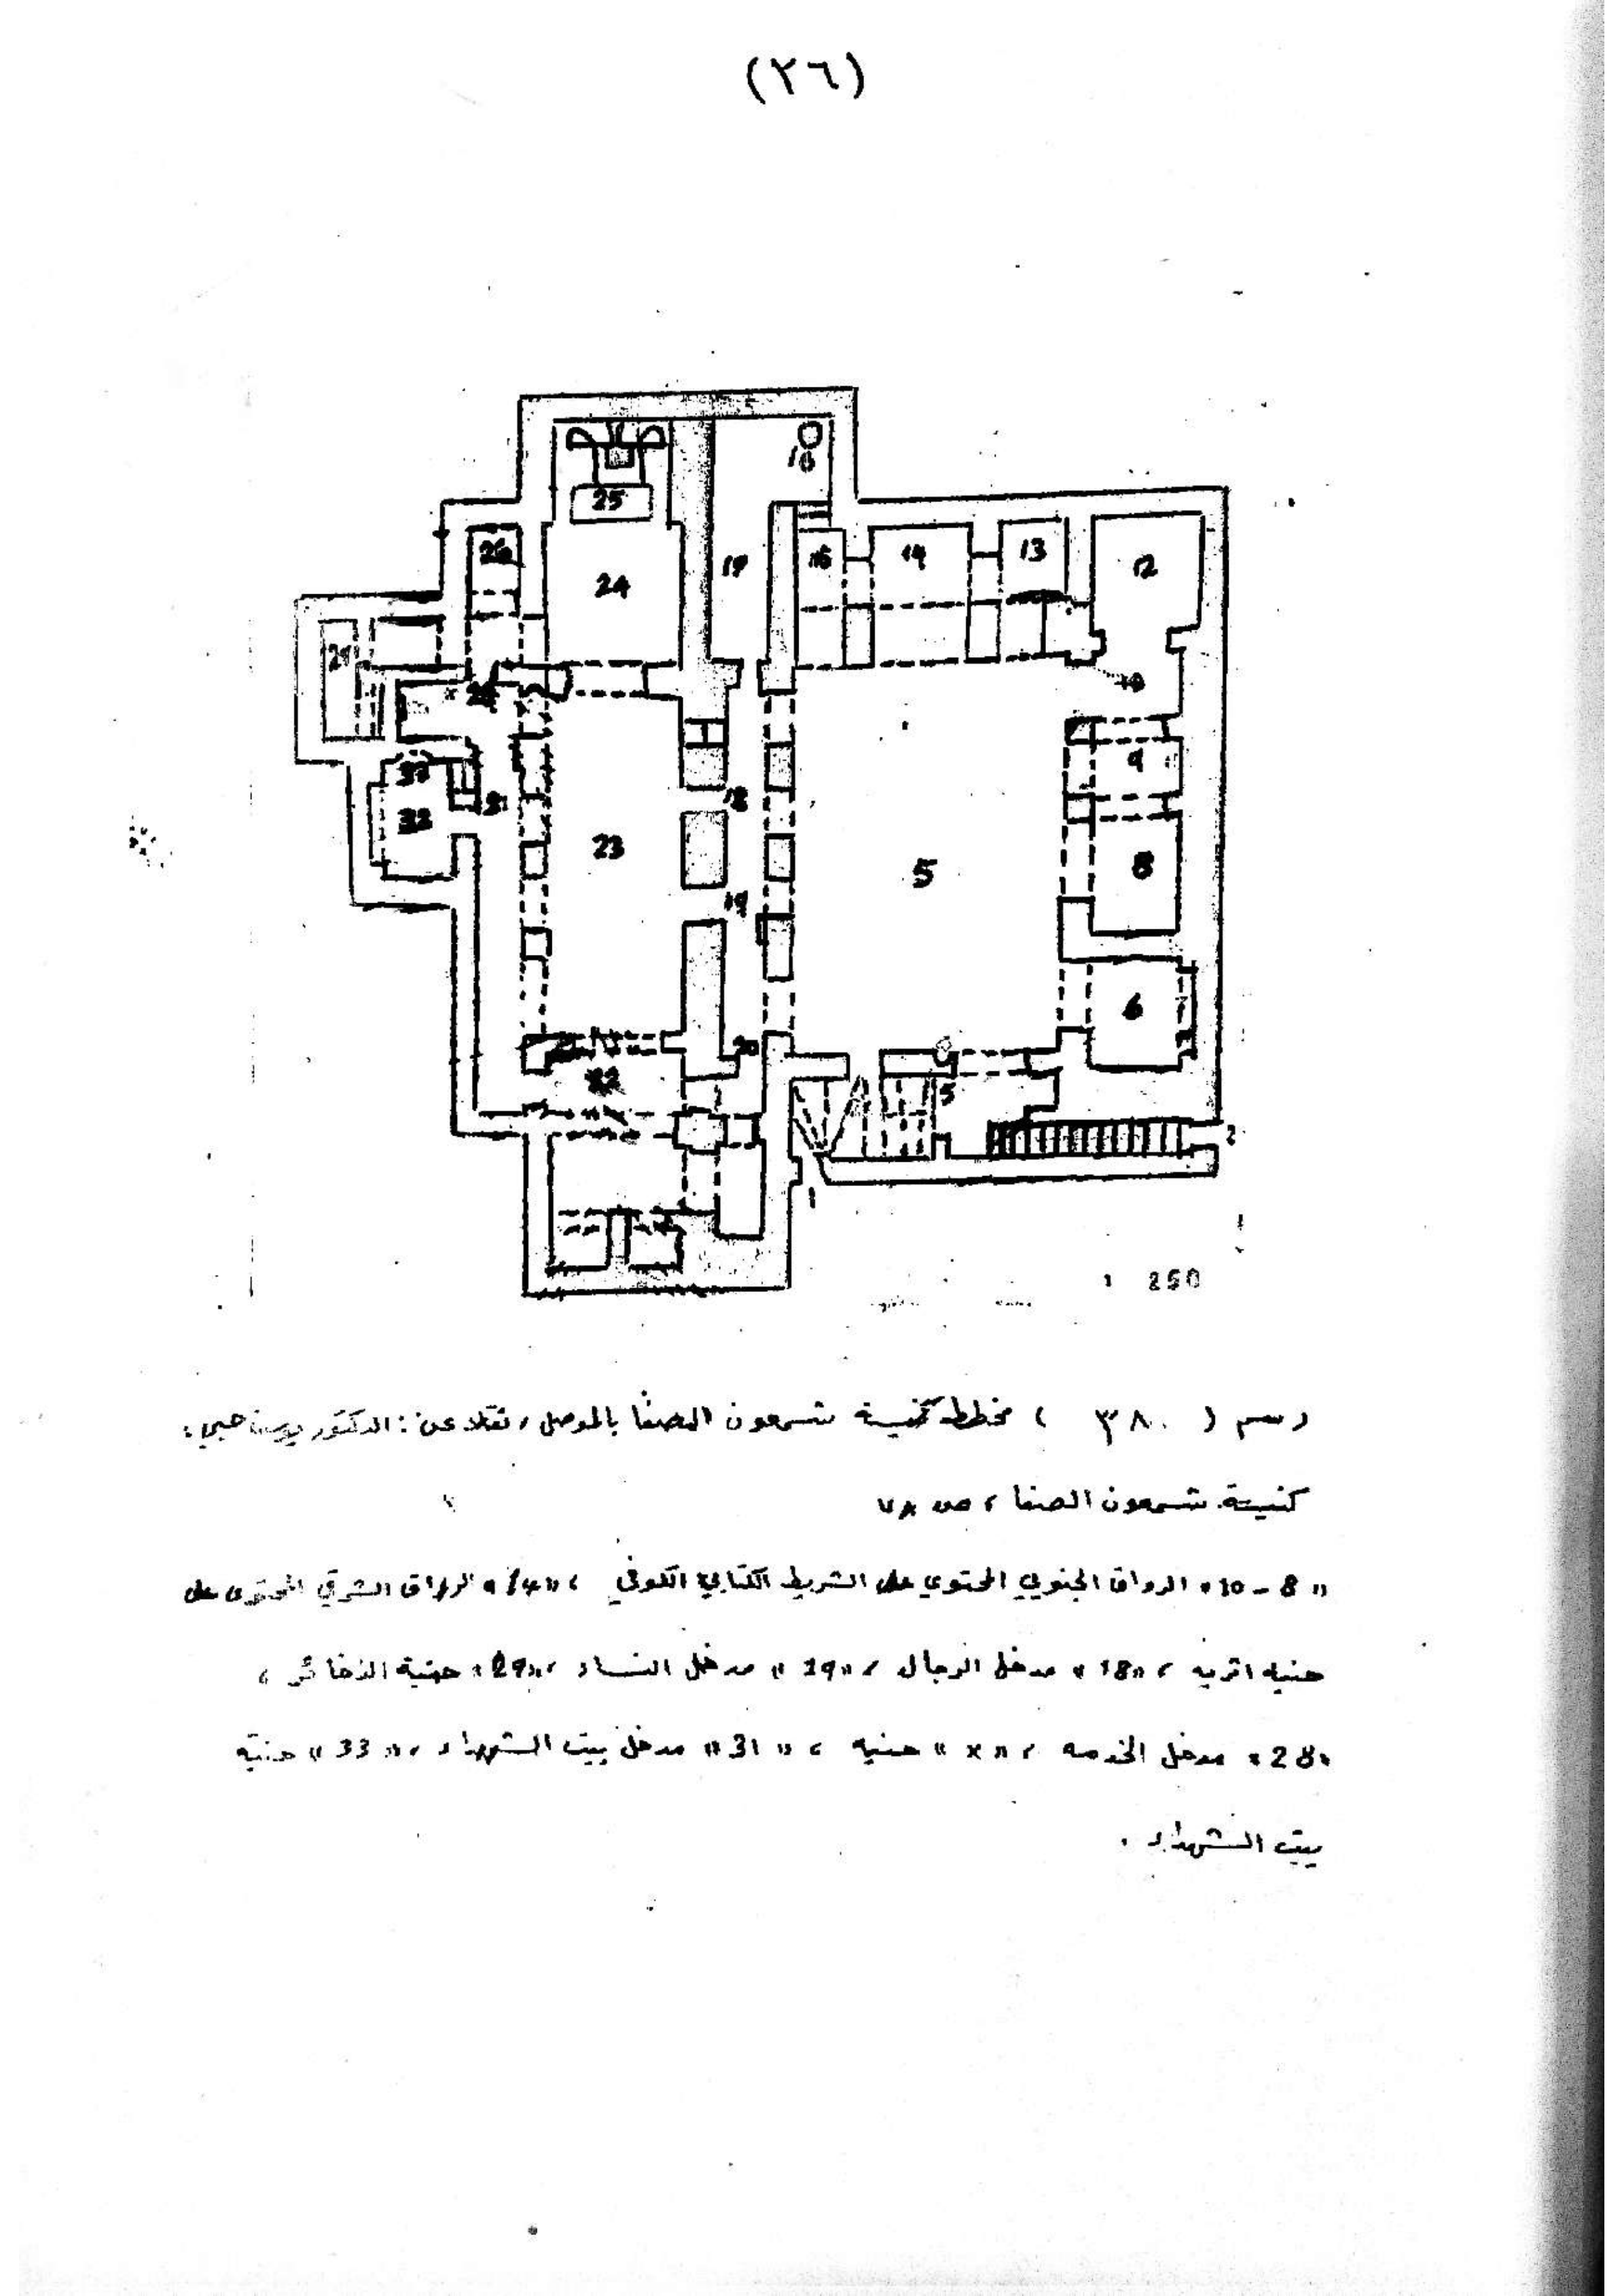 (٢٦)
25
26
24
17
16
14
13
12
9
18
23
5
8
32
31
19
6
20
22
5
2
1
1 250
رسم ( ٣٨٠ ) مخطط كنيسة شمعون الصفا بالموصل ، نقلا عن : الدكتور يوسف حبي ،
كنيسة شمعون الصفا ، ص ٧٨
« 8 - 10 » الرواق الجنوبي المحتوي على الشريط الكتابي الكوفي ، « 14 » الرواق الشرقي المحتوى على
حنيه اثريه ، « 18 » مدخل الرجال ، « 19 » مدخل النساء ، « 29 » حنية الذخائر ،
« 28 » مدخل الخدمه ، « x » حنيه ، « 31 » مدخل بيت الشهداء ، « 33 » حنية
بيت الشهداء .